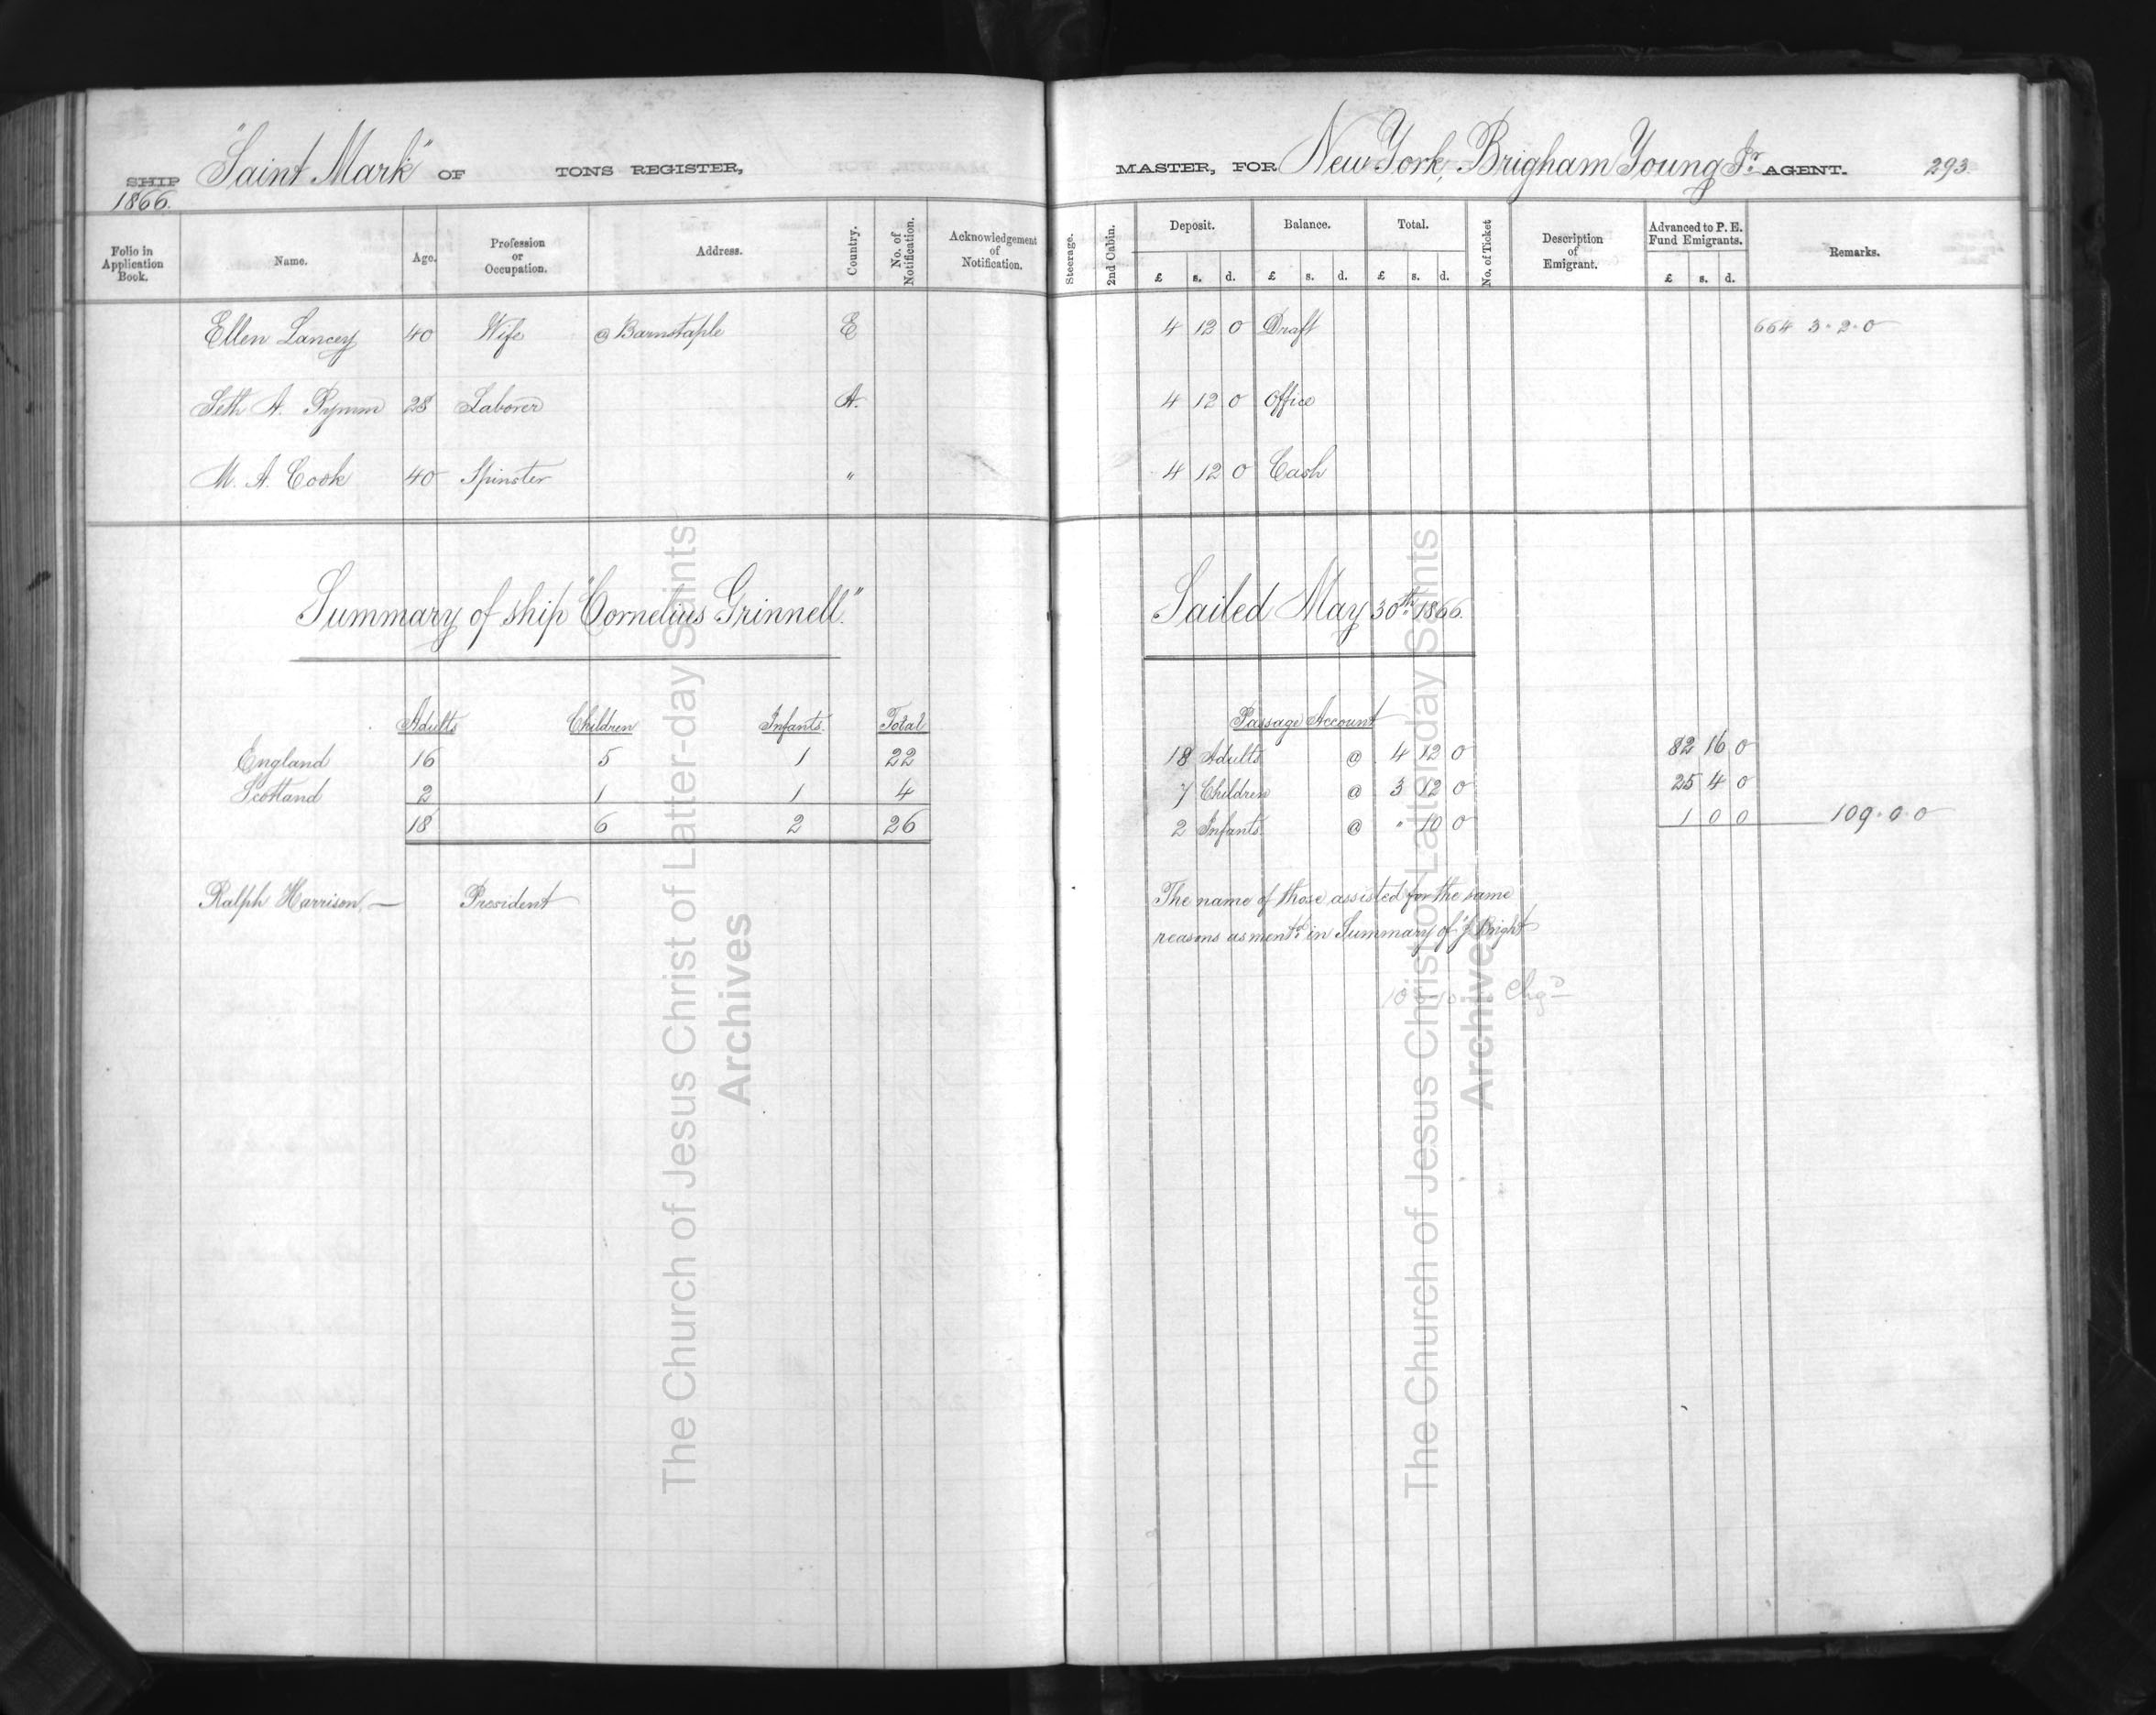 SHIP "Saint Mark" OF TONS REGISTER, MASTER, FOR New York, Brigham Young Jr. AGENT. 293.
1866.
Folio in Application Book. Name. Age. Profession or Occupation. Address. Country. No. of Notification. Acknowledgement of Notification. Steerage. 2nd Cabin. Deposit. Balance. Total. No. of Ticket Description of Emigrant. Advanced to P. E. Fund Emigrants. Remarks.
£ s. d. £ s. d. £ s. d. £ s. d.
Ellen Lancey 40 Wife @ Barnstaple E 4 12 0 Draft 664 3.2.0
Seth A. Pymm 28 Laborer A. 4 12 0 Office
M. A. Cook 40 Spinster " 4 12 0 Cash
Summary of ship "Cornelius Grinnell." Sailed May 30th 1866.
Adults Children Infants. Total Passage Account
England 16 5 1 22 18 Adults @ 4 12 0 82 16 0
Scotland 2 1 1 4 7 Children @ 3 12 0 25 4 0
18 6 2 26 2 Infants @ " 10 0 1 0 0 109.0.0
Ralph Harrison, — President The name of those assisted for the same
reasons as mentd. in Summary of "J Bright"
Chgd
The Church of Jesus Christ of Latter-day Saints
Archives
The Church of Jesus Christ of Latter-day Saints
Archives